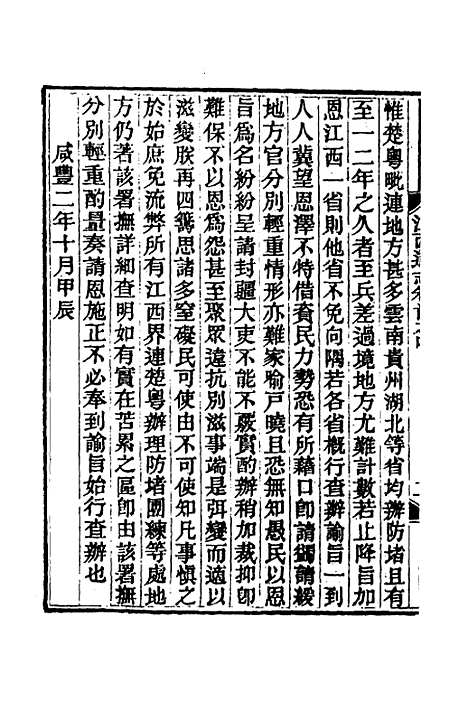 惟楚粵毗連地方甚多雲南貴州湖北等省均辦防堵且有
至一二年之久者至兵差過境地方尤難計數若止降旨加
恩江西一省則他省不免向隅若各省概行查辦諭旨一到
人人冀望恩澤不特借資民力勢恐有所藉口卽請蠲請緩
地方官分別輕重情形亦難家喻戶曉且恐無知愚民以恩
旨爲名紛紛呈請封疆大吏不能不覈實酌辦稍加裁抑卽
難保不以恩爲怨甚至聚眾違抗別滋事端是弭變而適以
滋變朕再四籌思諸多窒礙民可使由不可使知凡事愼之
於始庶免流弊所有江西界連楚粵辦理防堵團練等處地
方仍著該署撫詳細查明如有實在苦累之區卽由該署撫
分別輕重酌量奏請恩施正不必奉到諭旨始行查辦也
咸豐二年十月甲辰